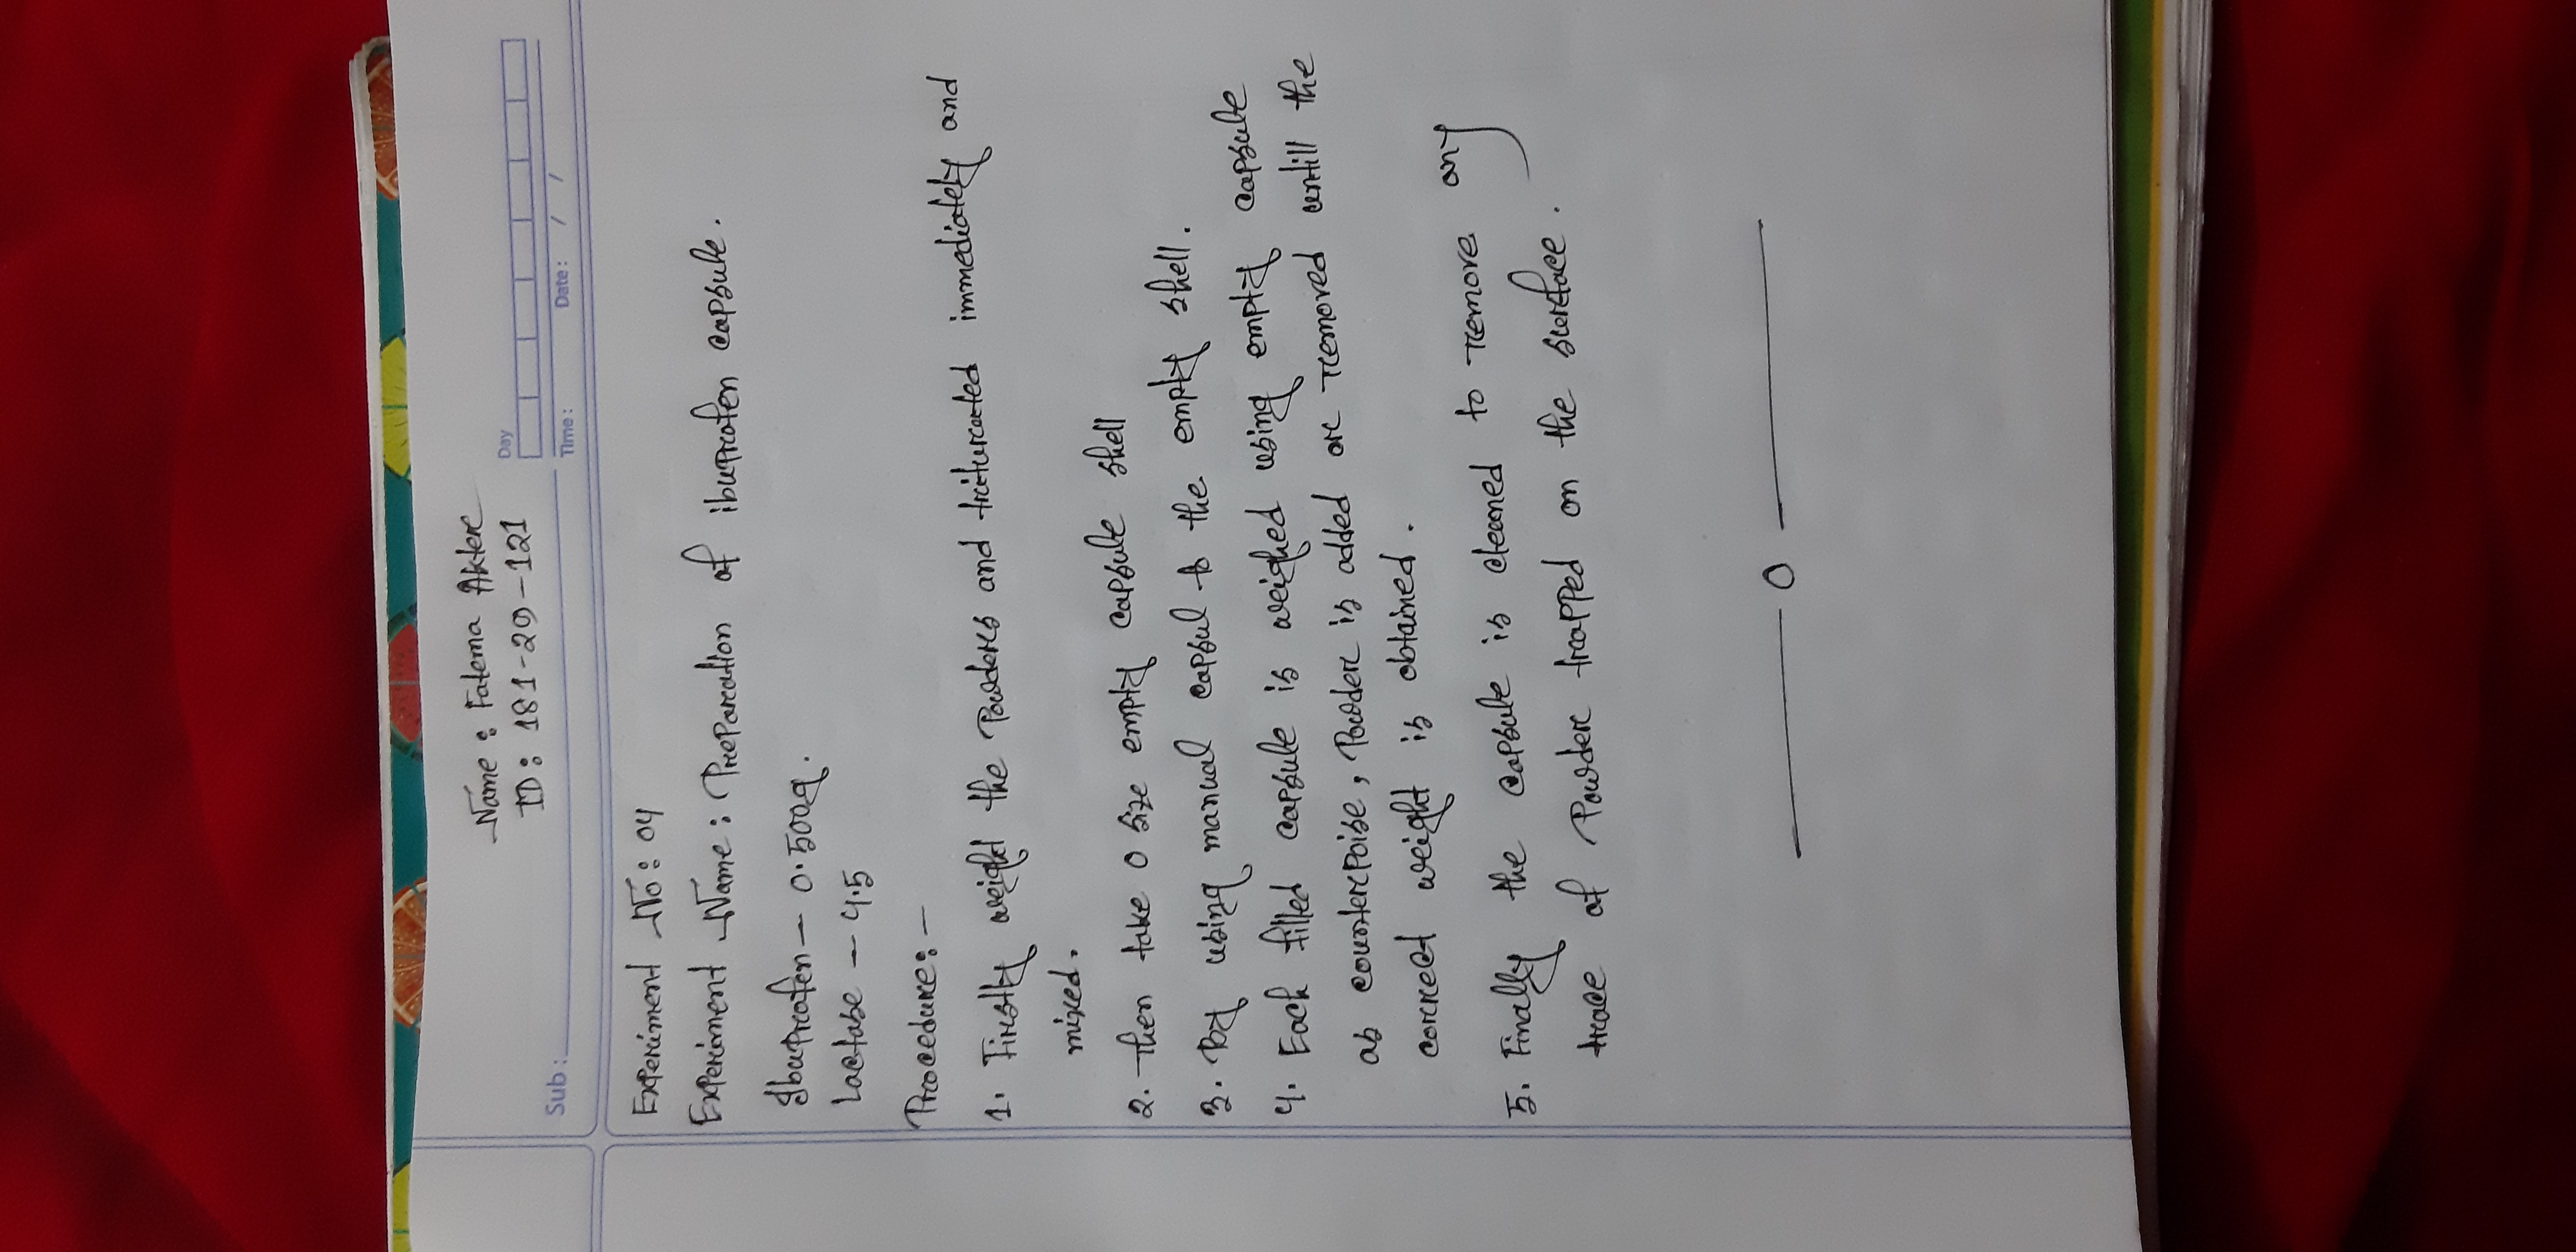 Name : Fatema Akter
ID : 181-29-121
Day
Sub :
Time :
Date : / /
Experiment No : 04
Experiment Name : Preparation of ibuprofen capsule.
Ibuprofen — 0.500g.
Lactose — 4.5
Procedure : —
1. Firstly weight the Powders and triturated immediately and
mixed.
2. Then take 0 size empty capsule shell
3. By using manual capsul to the empty shell.
4. Each filled capsule is weighed using empty capsule
as counterpoise, Powder is added or removed untill the
correct weight is obtained.
5. Finally the capsule is cleaned to remove any
trace of Powder trapped on the surface.
— 0 —